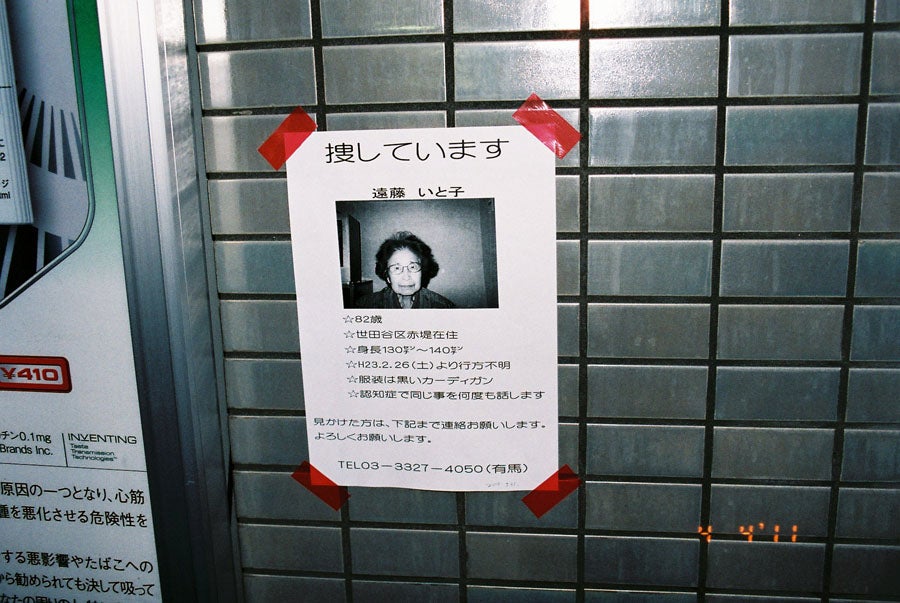 捜しています
遠藤 いと子
☆82歳
☆世田谷区赤堤在住
☆身長130㌢～140㌢
☆H23.2.26(土)より行方不明
☆服装は黒いカーディガン
☆認知症で同じ事を何度も話します
見かけた方は、下記まで連絡お願いします。
よろしくお願いします。
TEL03－3327－4050(有馬)
¥410
チン0.1mg
Brands Inc.
INVENTING
Taste
Transmission
Technologies
原因の一つとなり、心筋
腫を悪化させる危険性を
する悪影響やたばこへの
から勧められても決して吸って
4 4'11